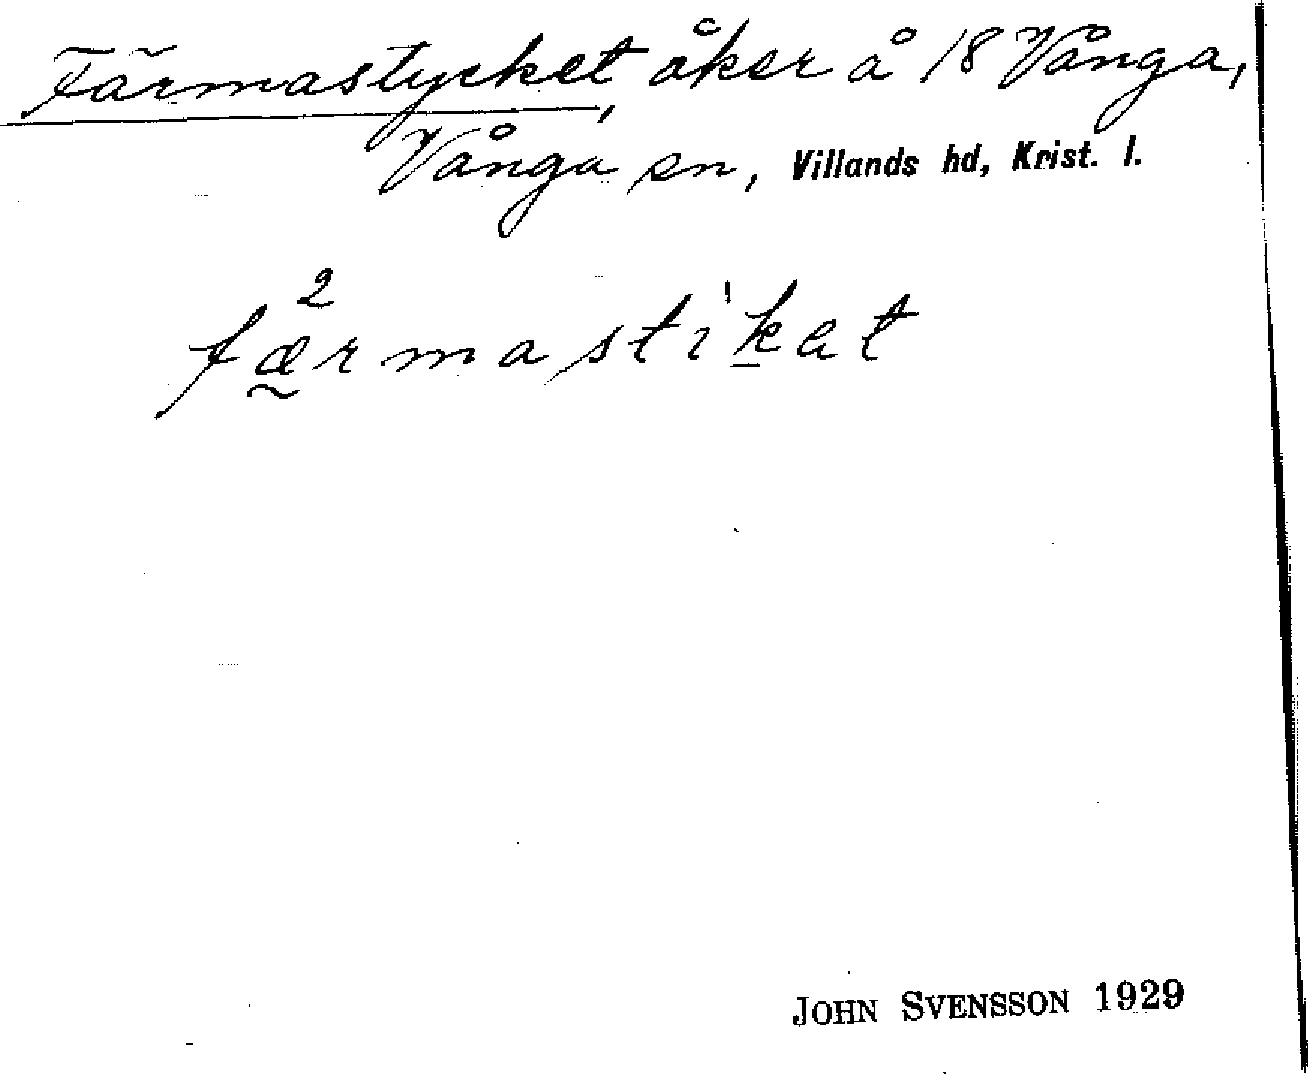 Färmastycket, åker å 18 Vånga,
Vånga sn, Villands hd, Krist. l.
2 1
færmastikat
JOHN SVENSSON 1929